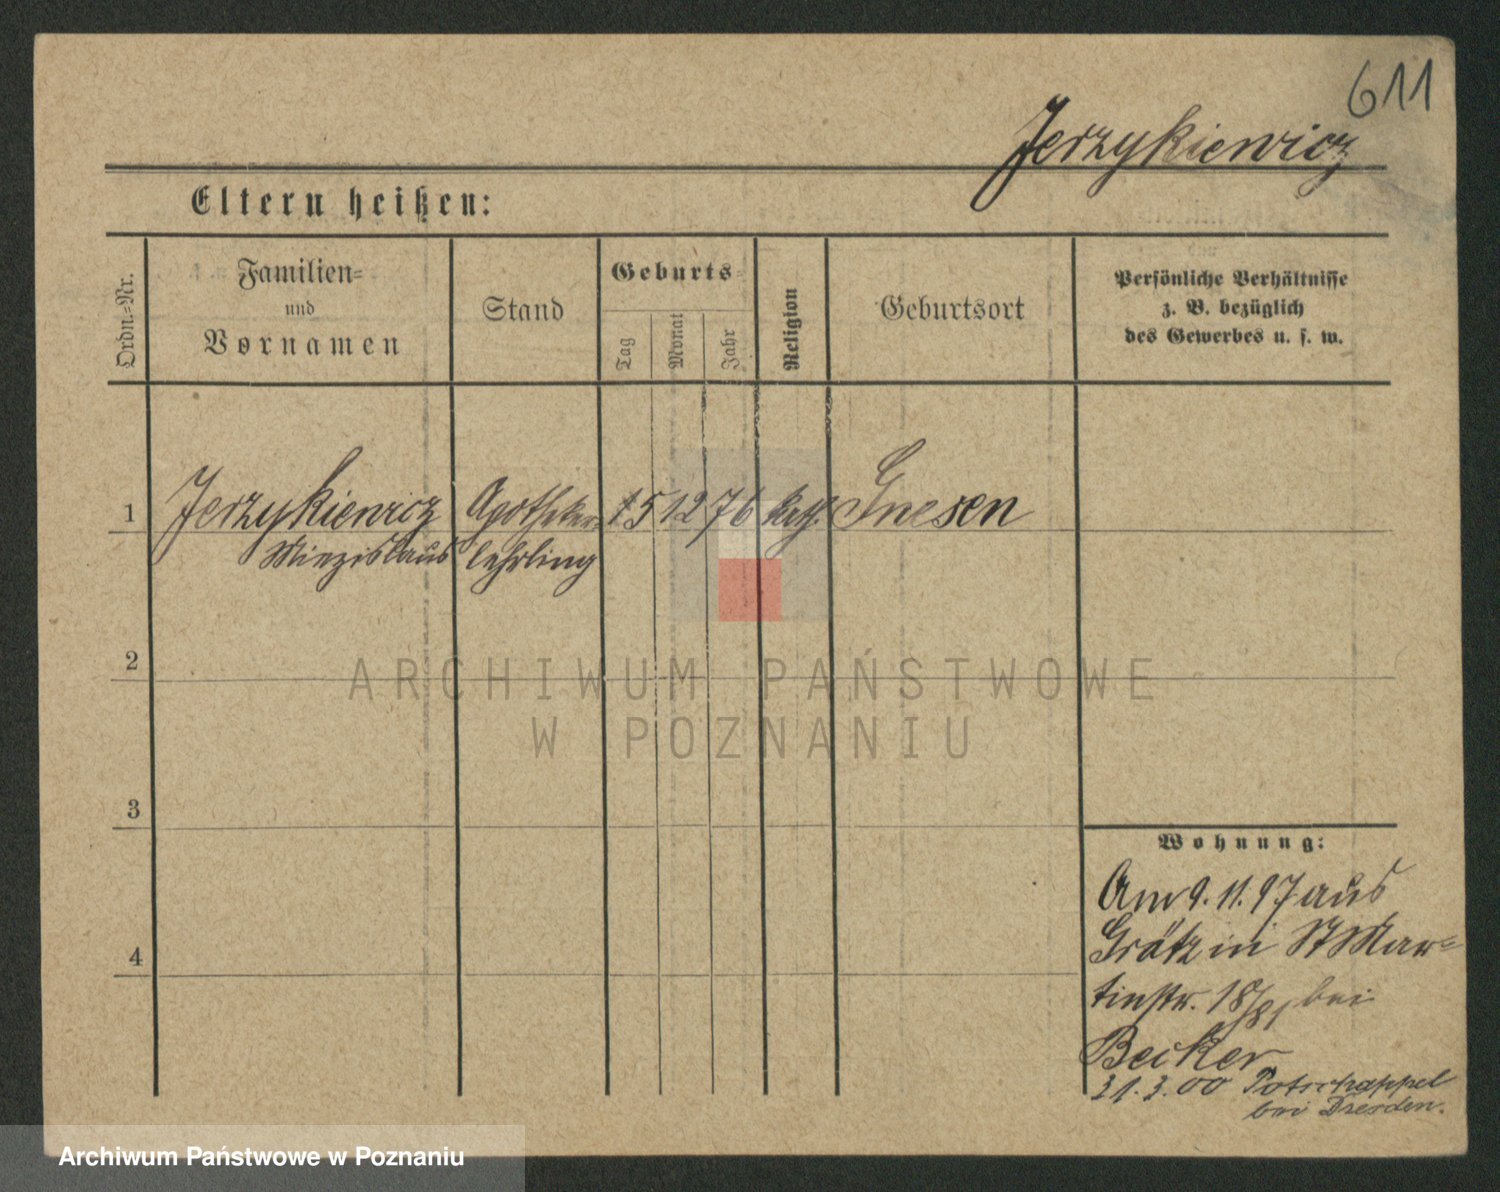 611
Jerzykiewicz
Eltern heißen:
Ordn.=Nr.
Familien=
und
Vornamen
Stand
Geburts=
Tag
Monat
Jahr
Religion
Geburtsort
Persönliche Verhältnisse
z. B. bezüglich
des Gewerbes u. s. w.
1 Jerzykiewicz Apotheker= 15 12 76 kath. Gnesen
Miezislaus lehrling
2
3
4
Wohnung:
Am 9. 11. 97 aus
Grätz in St Mar=
tinstr. 18/81 bei
Becker
31. 3. 00 Potschappel
bei Dresden.
ARCHIWUM PAŃSTWOWE
W POZNANIU
Archiwum Państwowe w Poznaniu